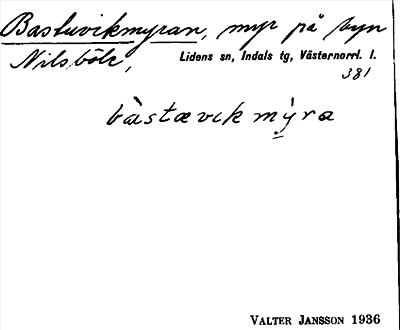 Bastuvikmyran, myr på byn
Nilsböle, Lidens sn, Indals tg, Västernorrl. l.
381
bàstævikmỳra
VALTER JANSSON 1936